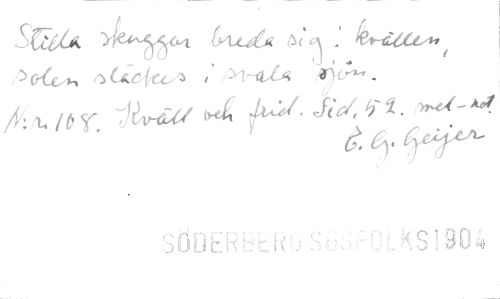 Stilla skuggor breda sig i kvällen,
solen släckes i svala sjön.
N:r 108. Kväll och frid. Sid. 52. mel-not.
E. G. Geijer
SÖDERBERG SGSFOLKS1904